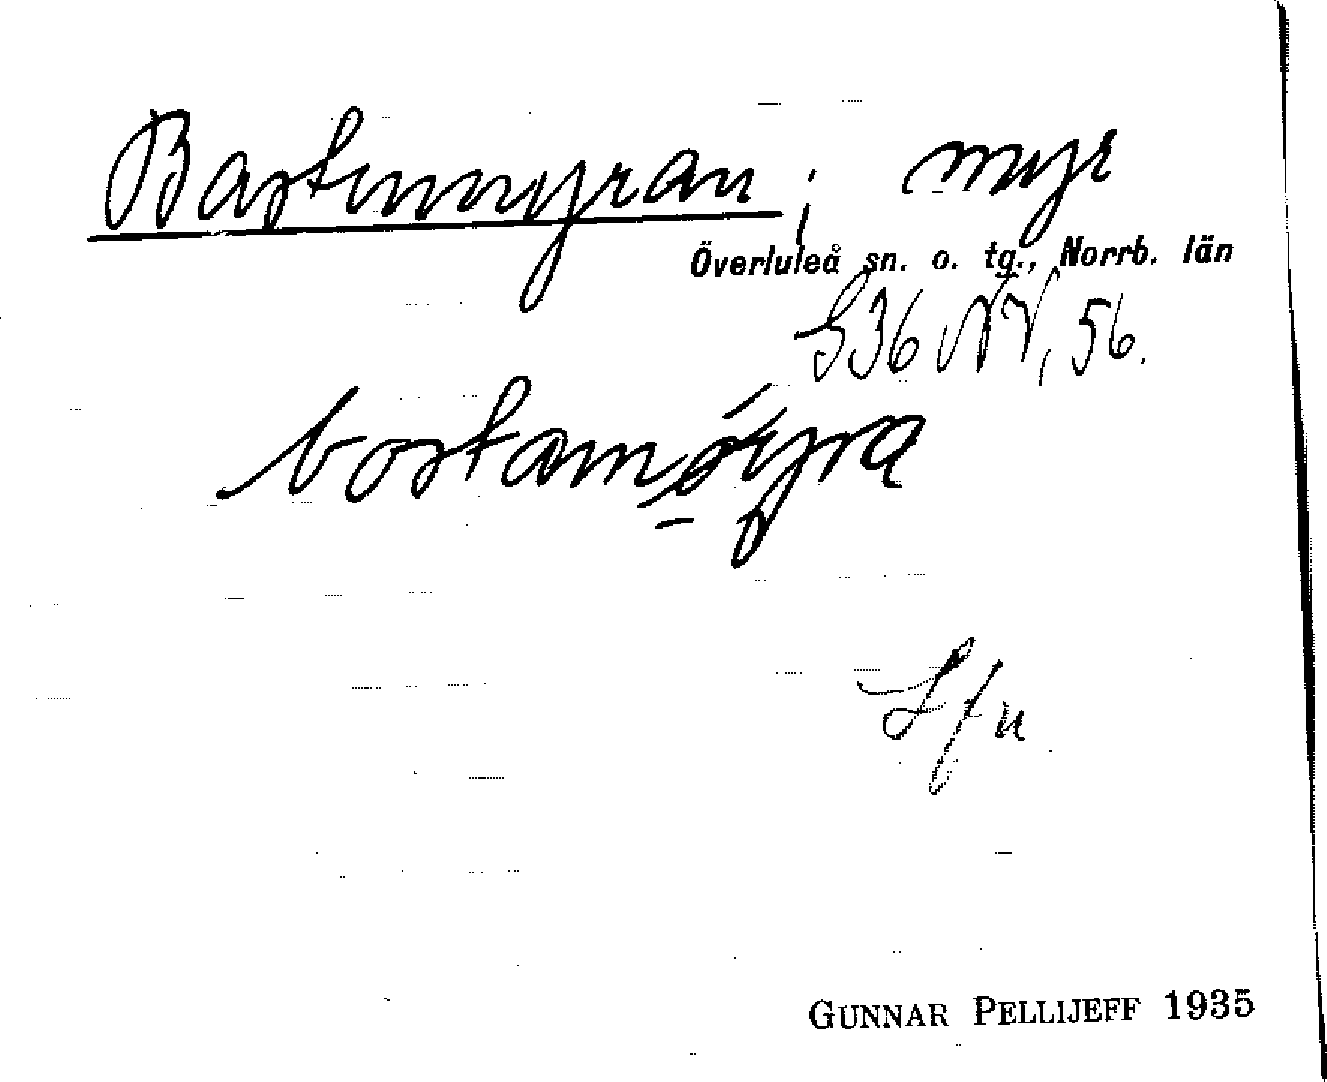 Bastumyran; myr
Överluleå sn. o. tg., Norrb. län
S36 NV, 56.
bostamǿyra
GUNNAR PELLIJEFF 1935